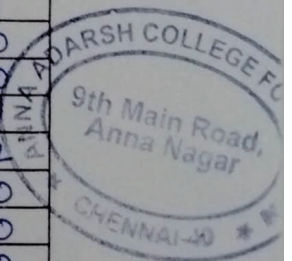 ANNA ADARSH COLLEGE FO
9th Main Road,
Anna Nagar
CHENNAI-40